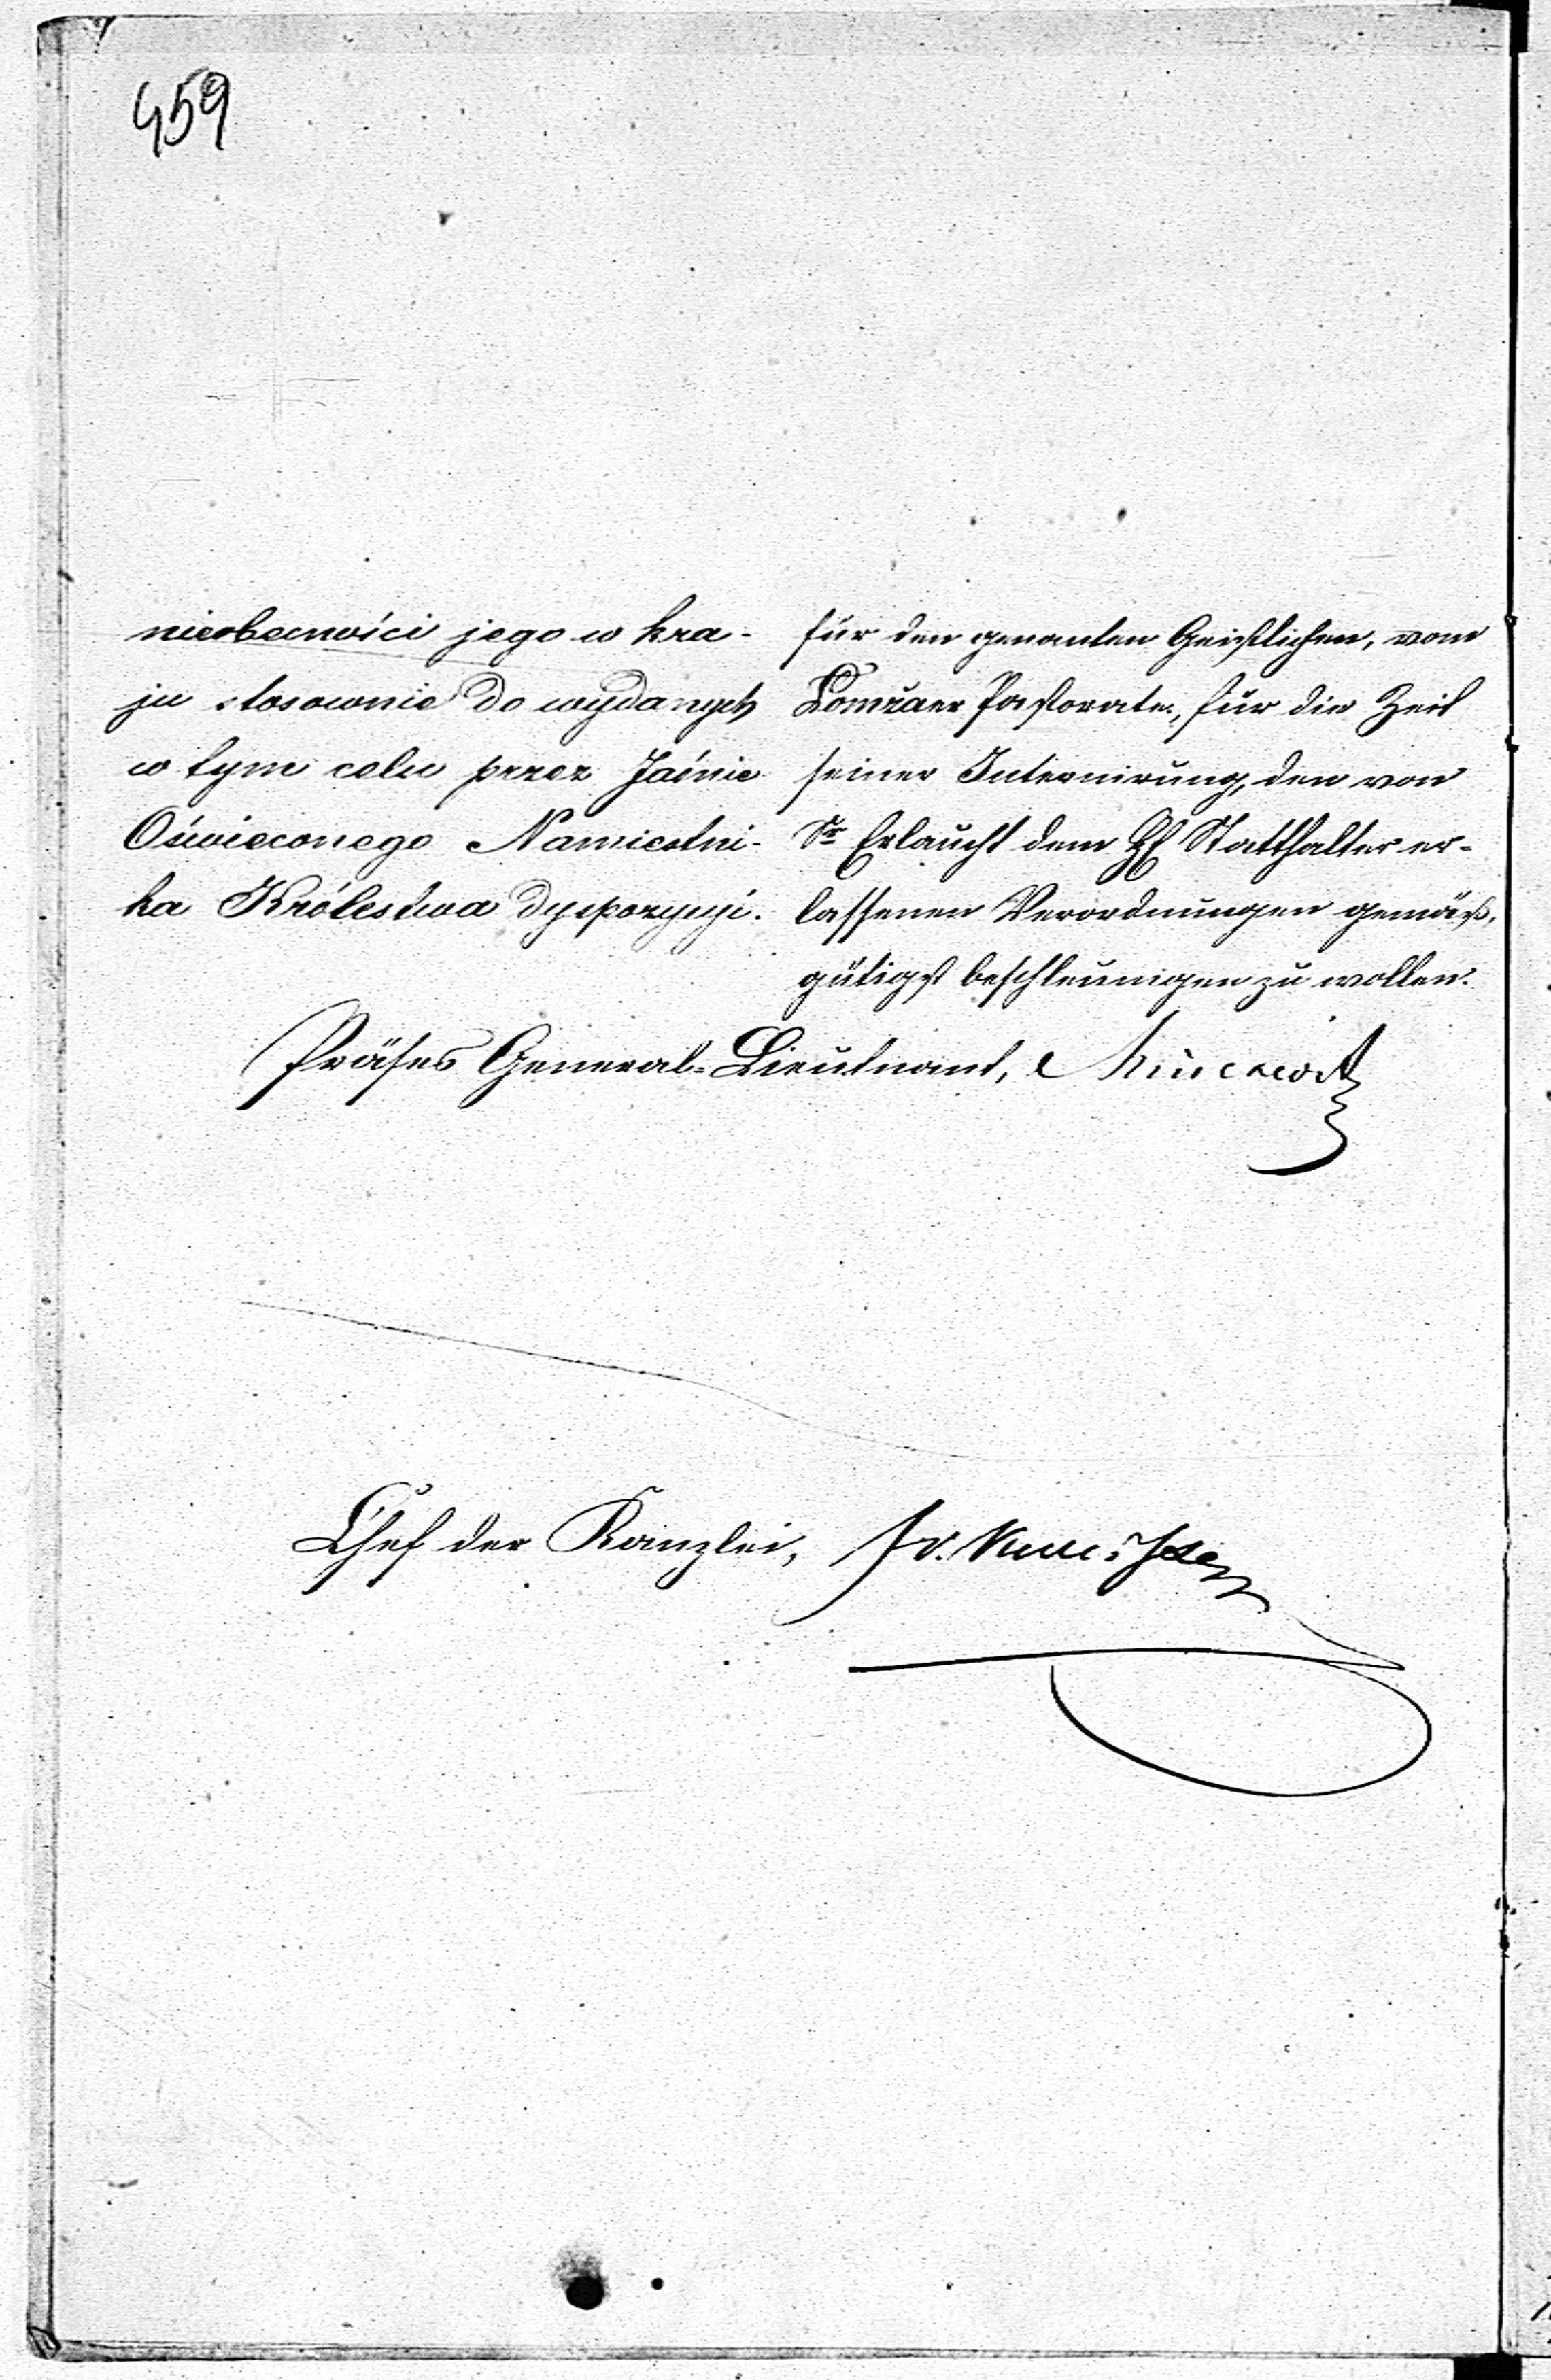 459
nieobecności jego w kra-
ju stosownie do wydanych
w tym celu przez Jaśnie
Oświeconego Namiestni-
ka Królestwa dyspozycyi.
für den genanten Geistlichen, vom
Lomżaer Pastorate, für die Zeit
seiner Internirung, den von
Sr Erlaucht dem Statthalter er-
lassenen Verordnungen gemäß,
gütigst beschleunigen zu wollen.
Präses General-Lieutnant,
Chef der Kanzlei,